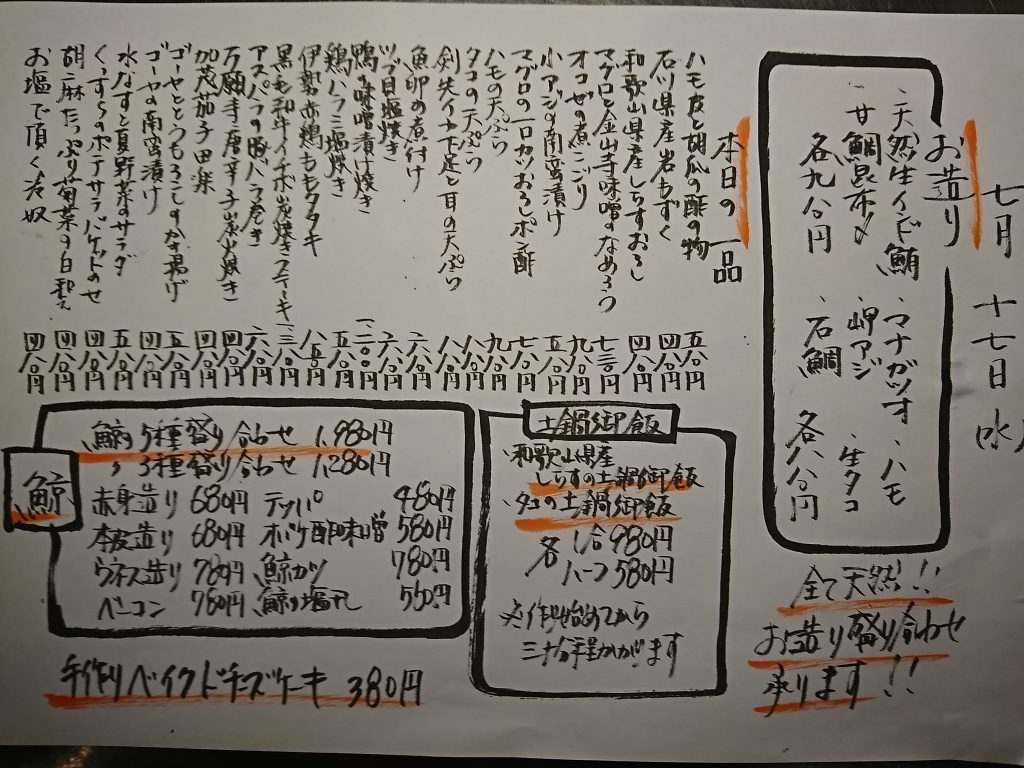 七月 十七日 水
お造り
・天然生インド鮪 ・マナガツオ ・ハモ
甘鯛昆布〆 ・岬アジ ・生タコ
各九八〇円 ・石鯛 各八八〇円
全て天然!!
お造り盛り合わせ
承ります!!
本日の一品
ハモ皮と胡瓜の酢の物 五八〇円
石川県産岩もずく 四八〇円
和歌山県産しらすおろし 四八〇円
マグロと金山寺味噌のなめろう 七三〇円
オコゼの煮こごり 九八〇円
小アジの南蛮漬け 五八〇円
マグロの一口カツおろしポン酢 七八〇円
ハモの天ぷら 九八〇円
タコの天ぷら 八八〇円
剣先イカ下足と耳の天ぷら 八八〇円
魚卵の煮付け 六八〇円
ツブ貝塩焼き 六八〇円
鴨の味噌漬け焼き 一、二〇〇円
鶏ハラミ塩焼き 五八〇円
伊勢赤鶏ももタタキ 八五〇円
黒毛和牛イチボ炭焼きステーキ
アスパラの豚バラ巻き 六八〇円
万願寺唐辛子炭火焼き 四八〇円
加茂茄子田楽 四八〇円
ゴーヤととうもろこしのかき揚げ 五八〇円
ゴーヤの南蛮漬け 四八〇円
水なすと夏野菜のサラダ 五八〇円
くんせいポテサラバケットのせ 四八〇円
胡麻たっぷり菊菜の白和え 四八〇円
お塩で頂く冷奴 四八〇円
土鍋御飯
・和歌山県産
しらすの土鍋御飯
・タコの土鍋御飯
各 1合 980円
ハーフ 580円
※作り始めてから
三十分程かかります
鯨
鯨5種盛り合わせ 1,980円
〃 3種盛り合わせ 1,280円
赤身造り 680円 テッパ 480円
本皮造り 680円 オバケ酢味噌 580円
ウネス造り 780円 鯨カツ 780円
ベーコン 780円 鯨の塩 550円
手作りベイクドチーズケーキ 380円